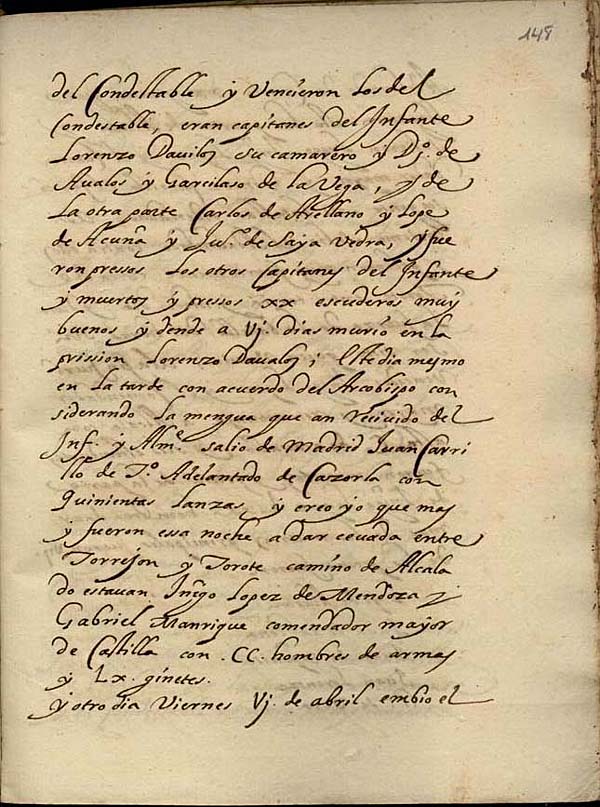 148
del Condestable y Vencieron Los del
Condestable, eran capitanes del Infante
Lorenzo Davilos su camarero y Dº. de
Aualos y Garcilaso de la Vega, y de
La otra parte Carlos de Arellano y Lope
de Acuña y Juº. de Saya Vedra, y fue
ron pressos Los otros Capitanes del Infante
y muertos y pressos xx escuderos muy
buenos y dende a Vj. dias murio en la
prission Lorenzo Davalos; Este dia mesmo
en La tarde con acuerdo del Arcobispo con
siderando La mengua que an recivido del
Inf. y Almᵉ. salio de Madrid Juan Carri
llº de Tº. Adelantado de Cazorla con
Quinientas Lanzas, y creo yo que mas
y fueron essa noche a dar cevada entre
Torrejon y Torote camino de Alcala
do estavan Iñigo Lopez de Mendoza y
Gabriel Manrique comendador mayor
de Castilla con .CC. hombres de armas
y Lx. ginetes.
y otro dia Viernes Vj. de abril embio el